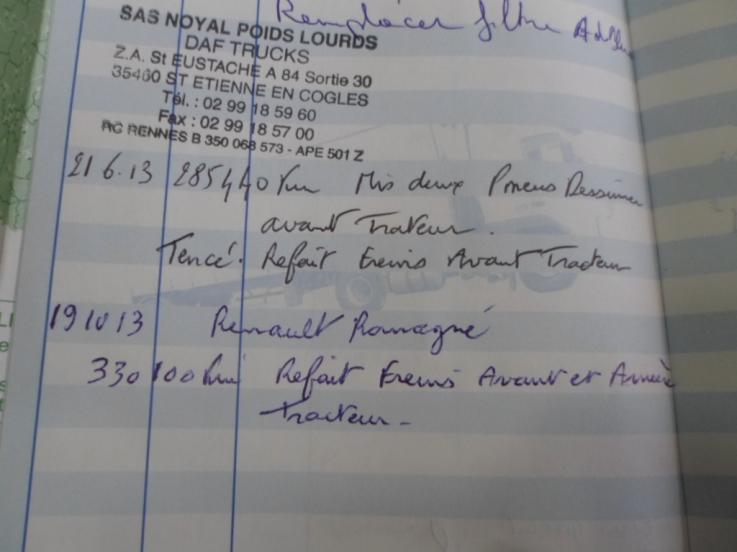 Remplacer filtre Adblue
SAS NOYAL POIDS LOURDS
DAF TRUCKS
Z.A. St EUSTACHE A 84 Sortie 30
35460 ST ETIENNE EN COGLES
Tél. : 02 99 18 59 60
Fax : 02 99 18 57 00
RC RENNES B 350 068 573 - APE 501 Z
21 6.13 285440 Km Mis deux Pneus
avant Tracteur.
Refait Freins Avant Tracteur
19 10 13 Renault Romagné
330 100 km Refait Freins Avant et Arrière
Tracteur.